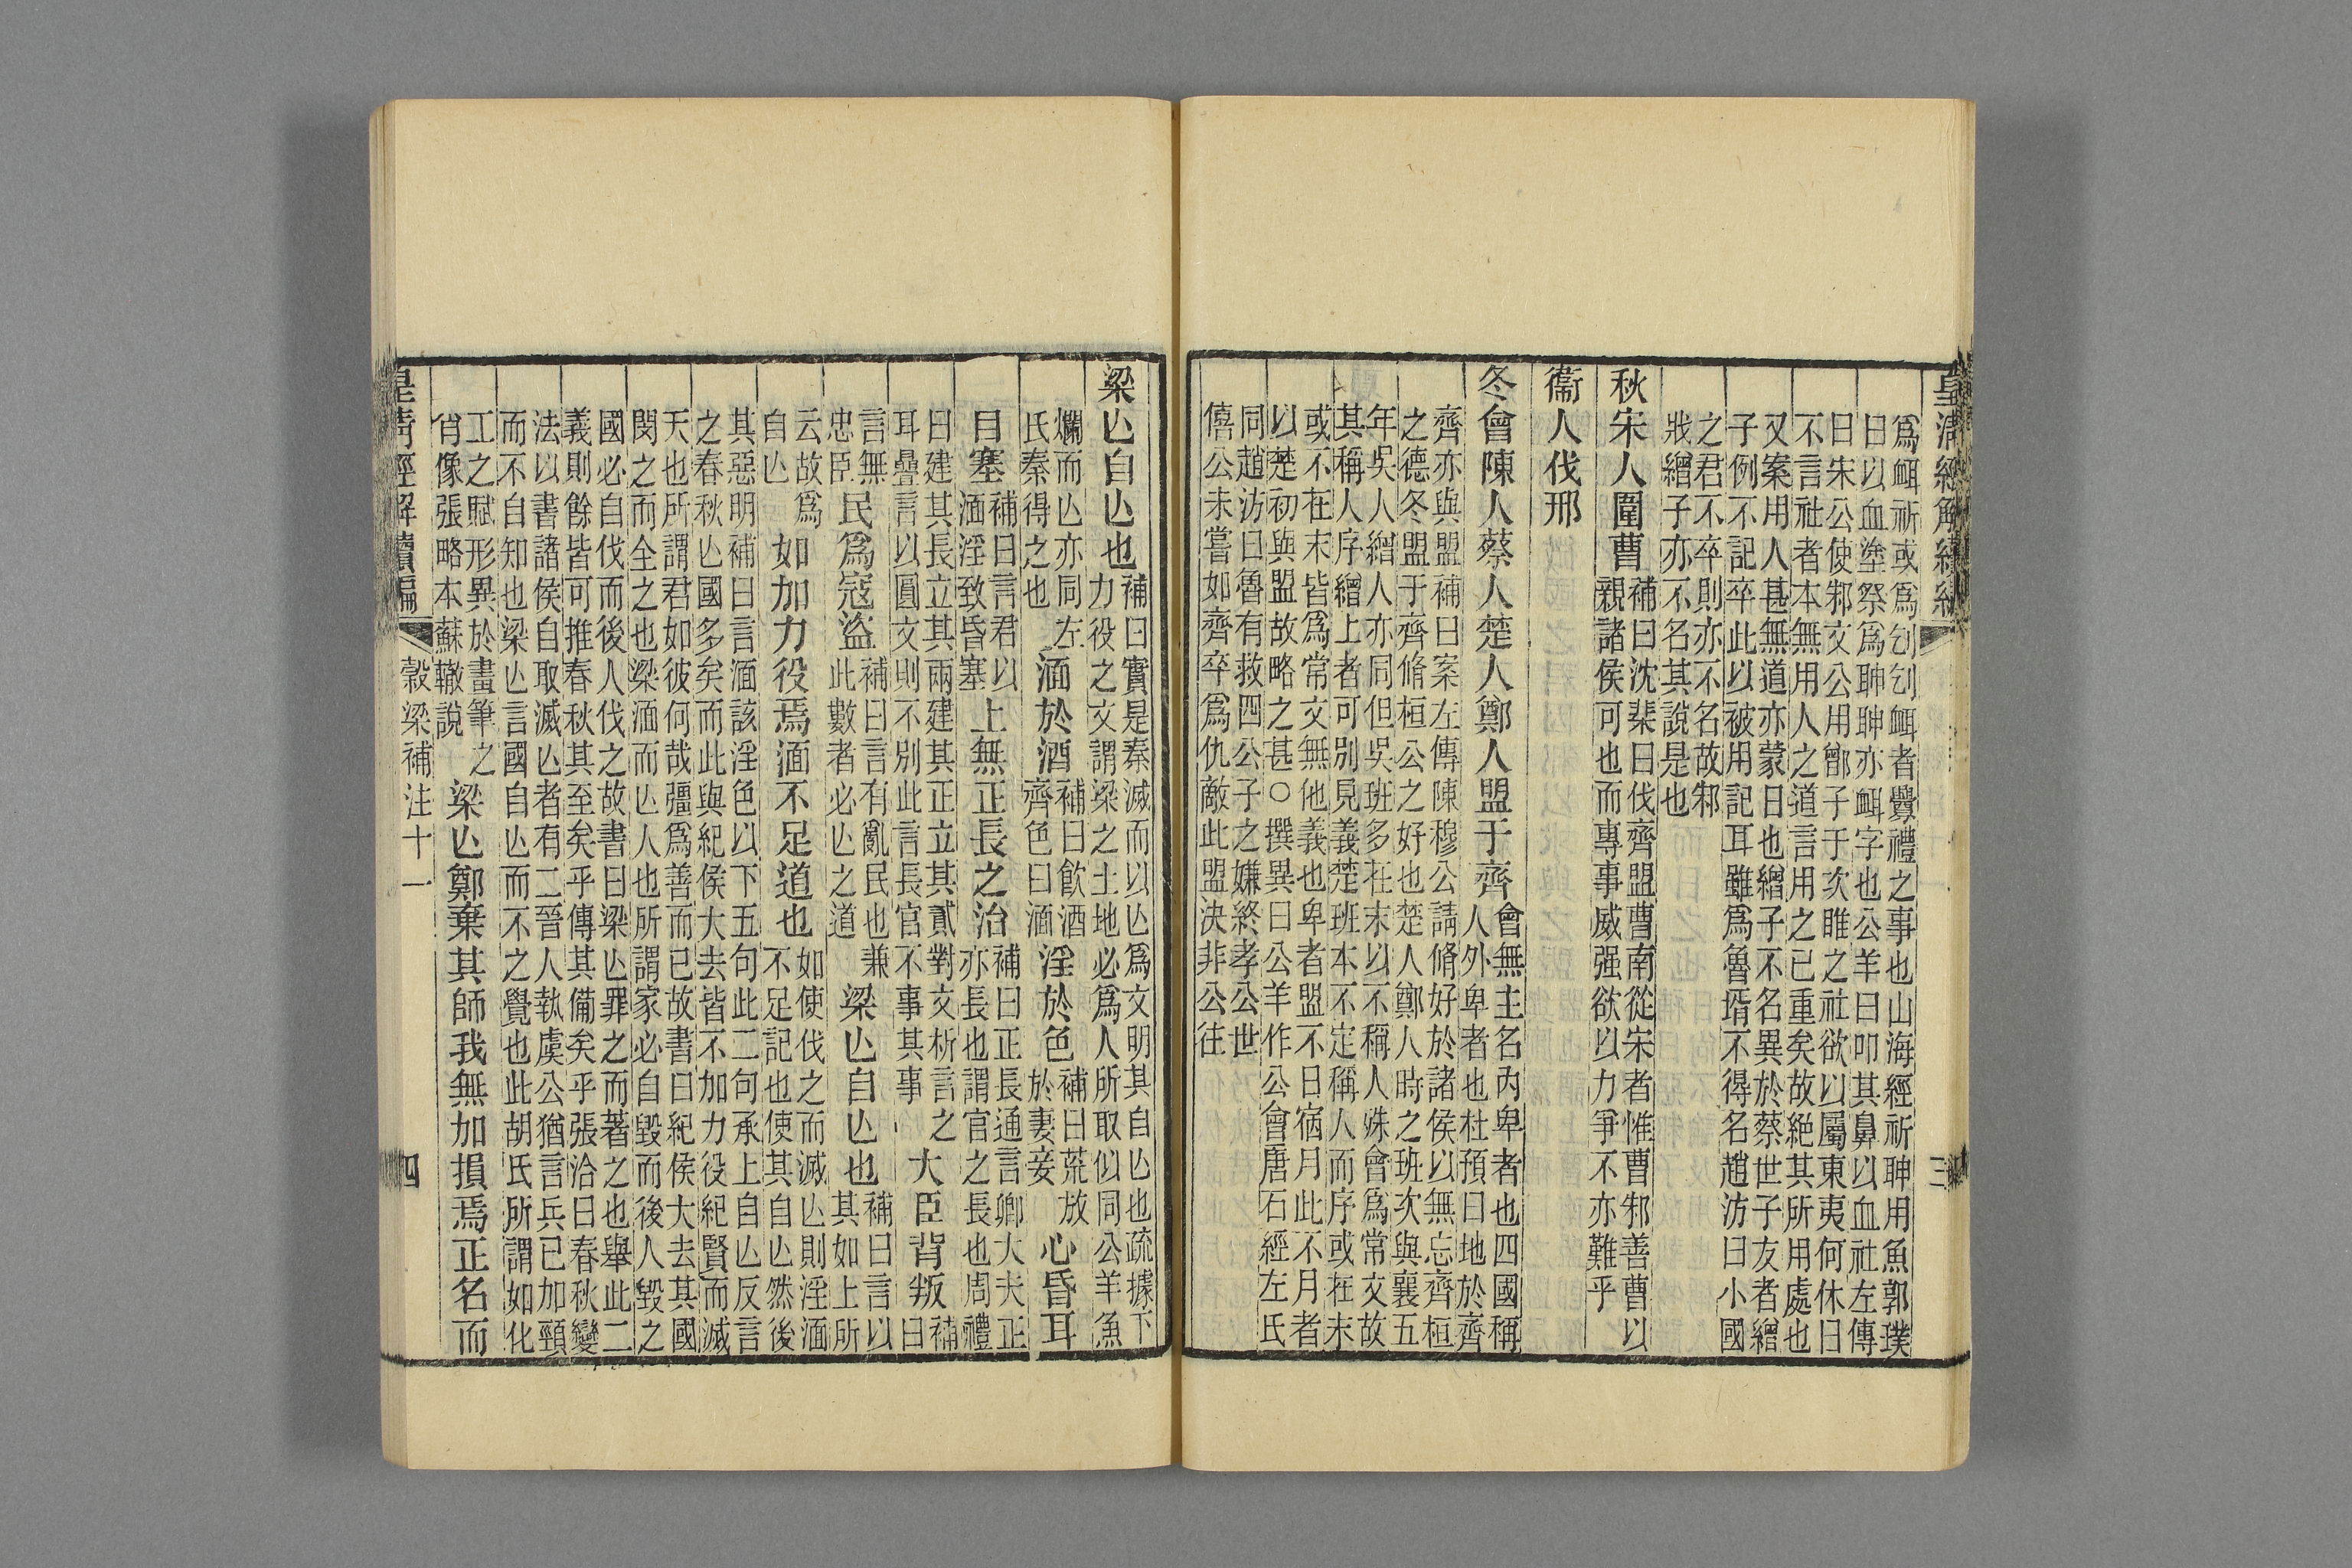 皇清經解續編 三
爲衈祈或爲刉刉衈者釁禮之事也山海經祈聃用魚郭璞
曰以血塗祭爲聃聃亦衈字也公羊曰叩其鼻以血社左傳
曰宋公使邾文公用鄫子于次睢之社欲以屬東夷何休曰
不言社者本無用人之道言用之已重矣故絕其所用處也
又案用人甚無道亦蒙日也繒子不名異於蔡世子友者繒
子例不記卒此以被用記耳雖爲魯壻不得名趙汸曰小國
之君不卒則亦不名故邾
戕繒子亦不名其說是也
秋宋人圍曹
補曰沈棐曰伐齊盟曹南從宋者惟曹邾善曹以
親諸侯可也而專事威强欲以力爭不亦難乎
衞人伐邢
冬會陳人蔡人楚人鄭人盟于齊
會無主名內卑者也四國稱
人外卑者也杜預曰地於齊
齊亦與盟補曰案左傳陳穆公請脩好於諸侯以無忘齊桓
之德冬盟于齊脩桓公之好也楚人鄭人時之班次與襄五
年吳人繒人亦同但吳班多在末以不稱人殊會爲常文故
其稱人序繒上者可別見義楚班本不定稱人而序或在末
或不在末皆爲常文無他義也卑者盟不日宿月此不月者
以楚初與盟故略之甚○撰異曰公羊作公會唐石經左氏
同趙汸曰魯有救四公子之嫌終孝公世
僖公未嘗如齊卒爲仇敵此盟決非公往
梁亾自亾也
補曰實是秦滅而以亾爲文明其自亾也疏據下
力役之文謂梁之土地必爲人所取似同公羊魚
爛而亾亦同左
氏秦得之也
湎於酒
補曰飲酒
齊色曰湎
淫於色
補曰荒放
於妻妾
心昏耳
目塞
補曰言君以
湎淫致昏塞
上無正長之治
補曰正長通言卿大夫正
亦長也謂官之長也周禮
曰建其長立其兩建其正立其貳對文析言之
耳疊言以圓文則不別此言長官不事其事
大臣背叛
補
曰
言無
忠臣
民爲寇盜
補曰言有亂民也兼
此數者必亾之道
梁亾自亾也
補曰言以
其如上所
云故爲
自亾
如加力役焉湎不足道也
如使伐之而滅亾則淫湎
不足記也使其自亾然後
其惡明補曰言湎該淫色以下五句此二句承上自亾反言
之春秋亾國多矣而此與紀侯大去皆不加力役紀賢而滅
天也所謂君如彼何哉彊爲善而已故書曰紀侯大去其國
閔之而全之也梁湎而亾人也所謂家必自毀而後人毀之
國必自伐而後人伐之故書曰梁亾罪之而著之也舉此二
義則餘皆可推春秋其至矣乎傳其備矣乎張洽曰春秋變
法以書諸侯自取滅亾者有二晉人執虞公猶言兵已加頸
而不自知也梁亾言國自亾而不之覺也此胡氏所謂如化
工之賦形異於畫筆之
肖像張略本蘇轍說
梁亾鄭棄其師我無加損焉正名而
皇清經解續編 穀梁補注十一 四